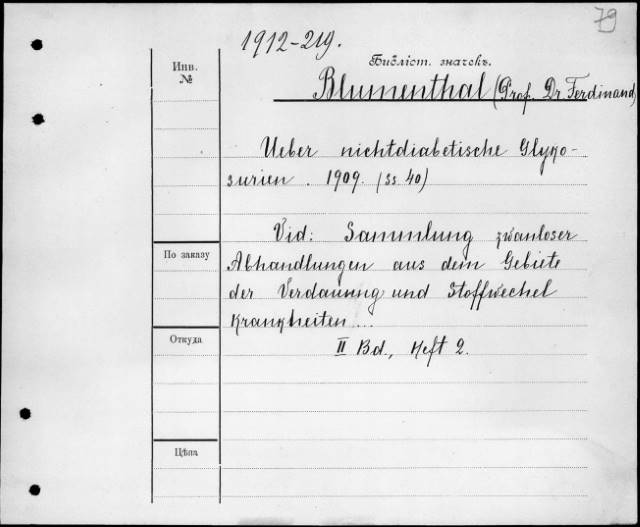 79
1912-219.
Инв.
№
Библіот. значекъ.
Blumenthal (Prof. Dr Ferdinand)
Ueber nichtdiabetische Glyko-
surien. 1909. (ss. 40)
Vid: Sammlung zwanloser
По заказу
Abhandlungen aus dem Gebiete
der Verdauung und Stoffwechel
krankheiten...
Откуда
II Bd., Heft 2.
Цѣна